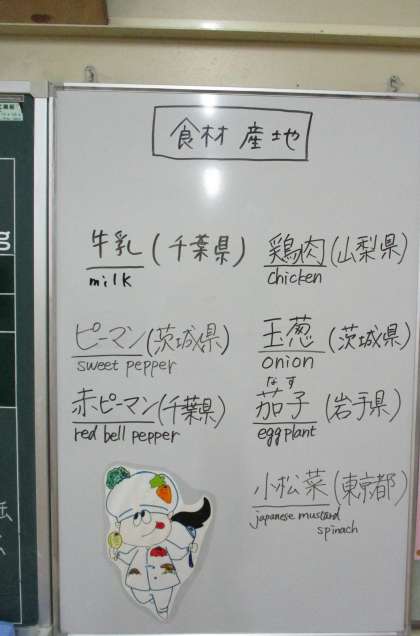 食材 産地
牛乳 (千葉県)
milk
鶏肉 (山梨県)
chicken
ピーマン (茨城県)
sweet pepper
玉葱 (茨城県)
onion
赤ピーマン (千葉県)
red bell pepper
なす
茄子 (岩手県)
eggplant
小松菜 (東京都)
japanese mustard
spinach